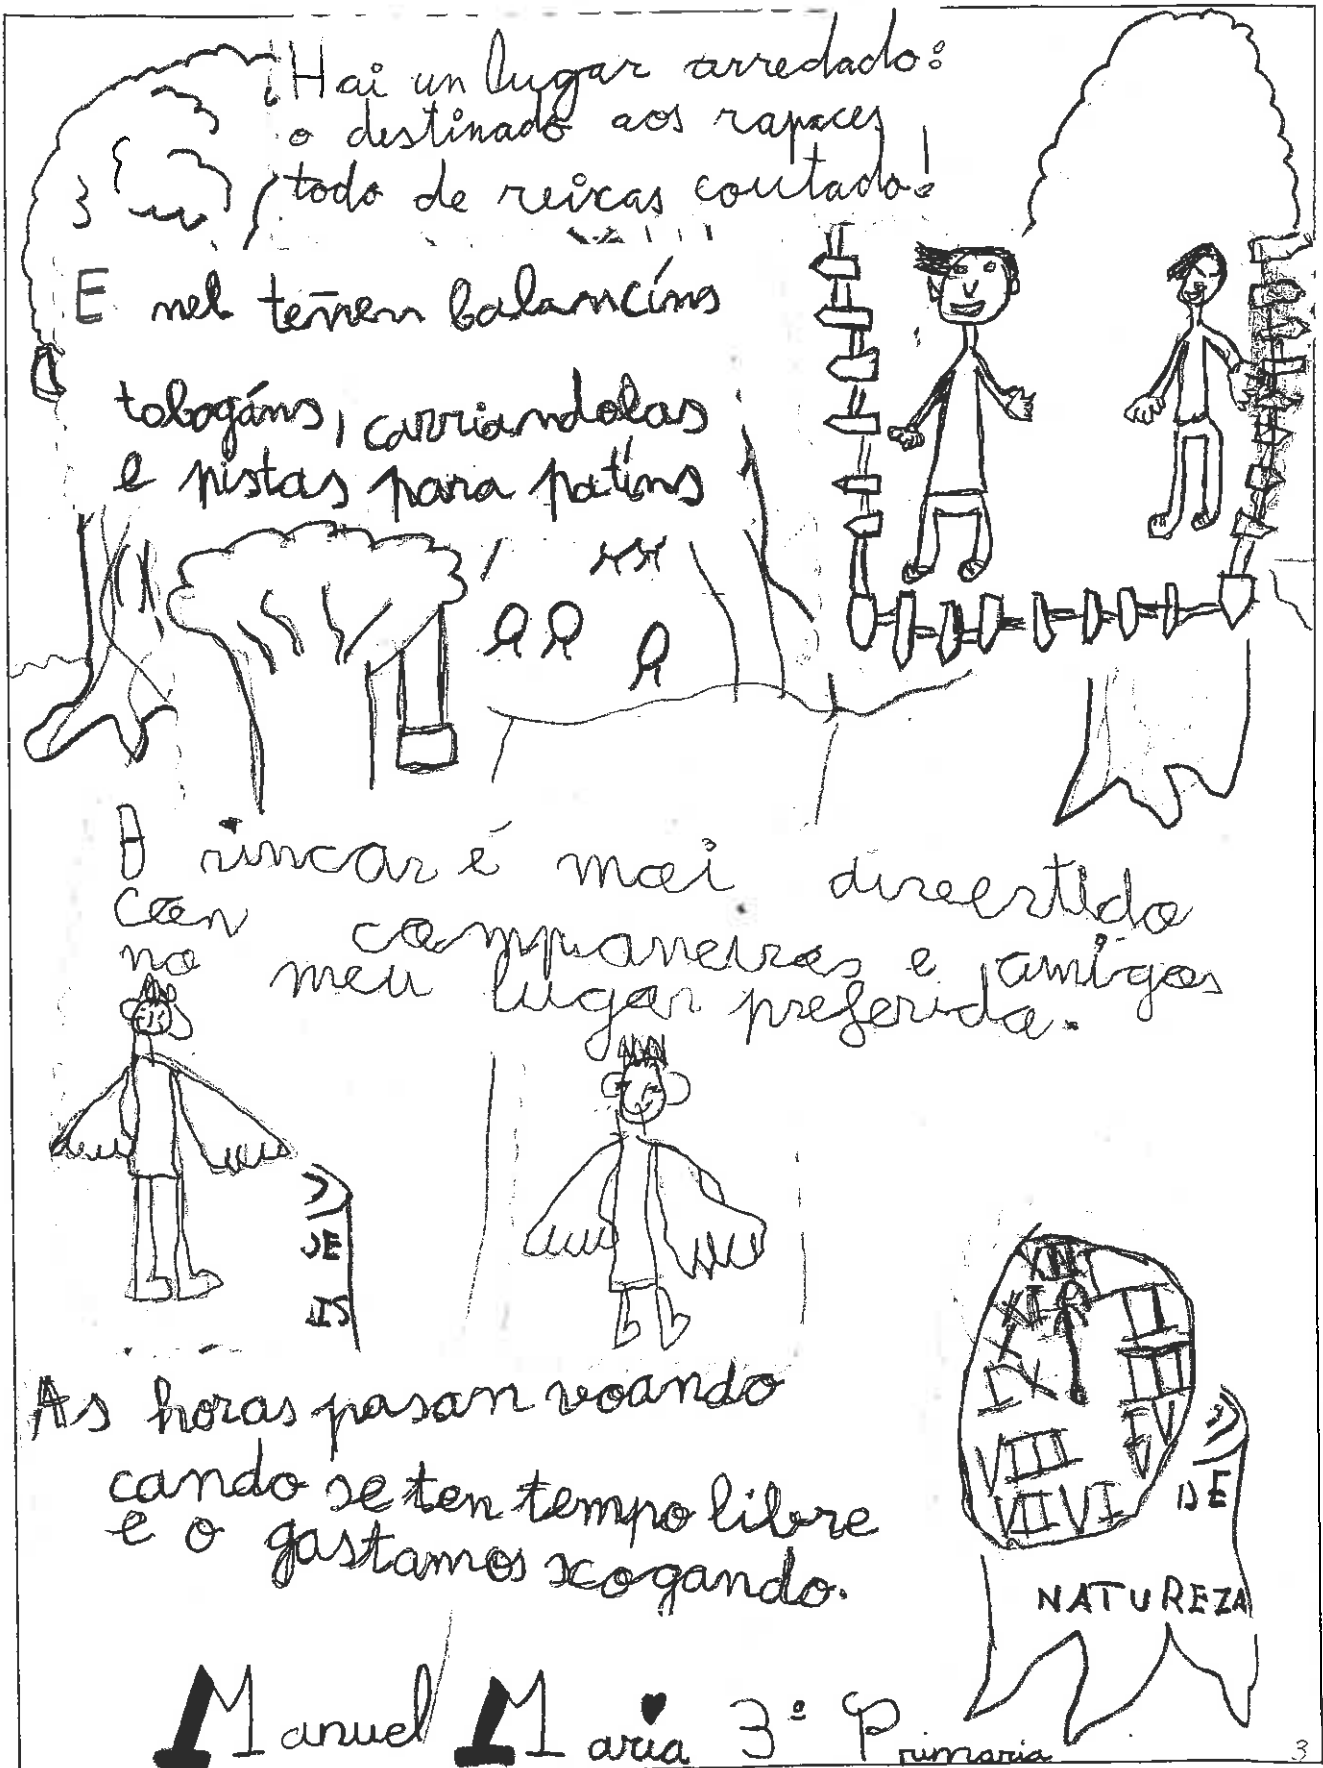 ¡Hai un lugar arredado:
o destinado aos rapaces
todo de reixas coutado!
E nel teñen balancíns
tobogáns, carriandolas
e pistas para patíns
O rincar é mai diveertido
con companeiros e amigos
no meu lugar preferido.
DE
As horas pasan voando
cando se ten tempo libre
e o gastamos xogando.
XII
XI
II
X
III
IX
IV
VIII
VII VI
DE
NATUREZA
Manuel Maria 3º Primaria
3